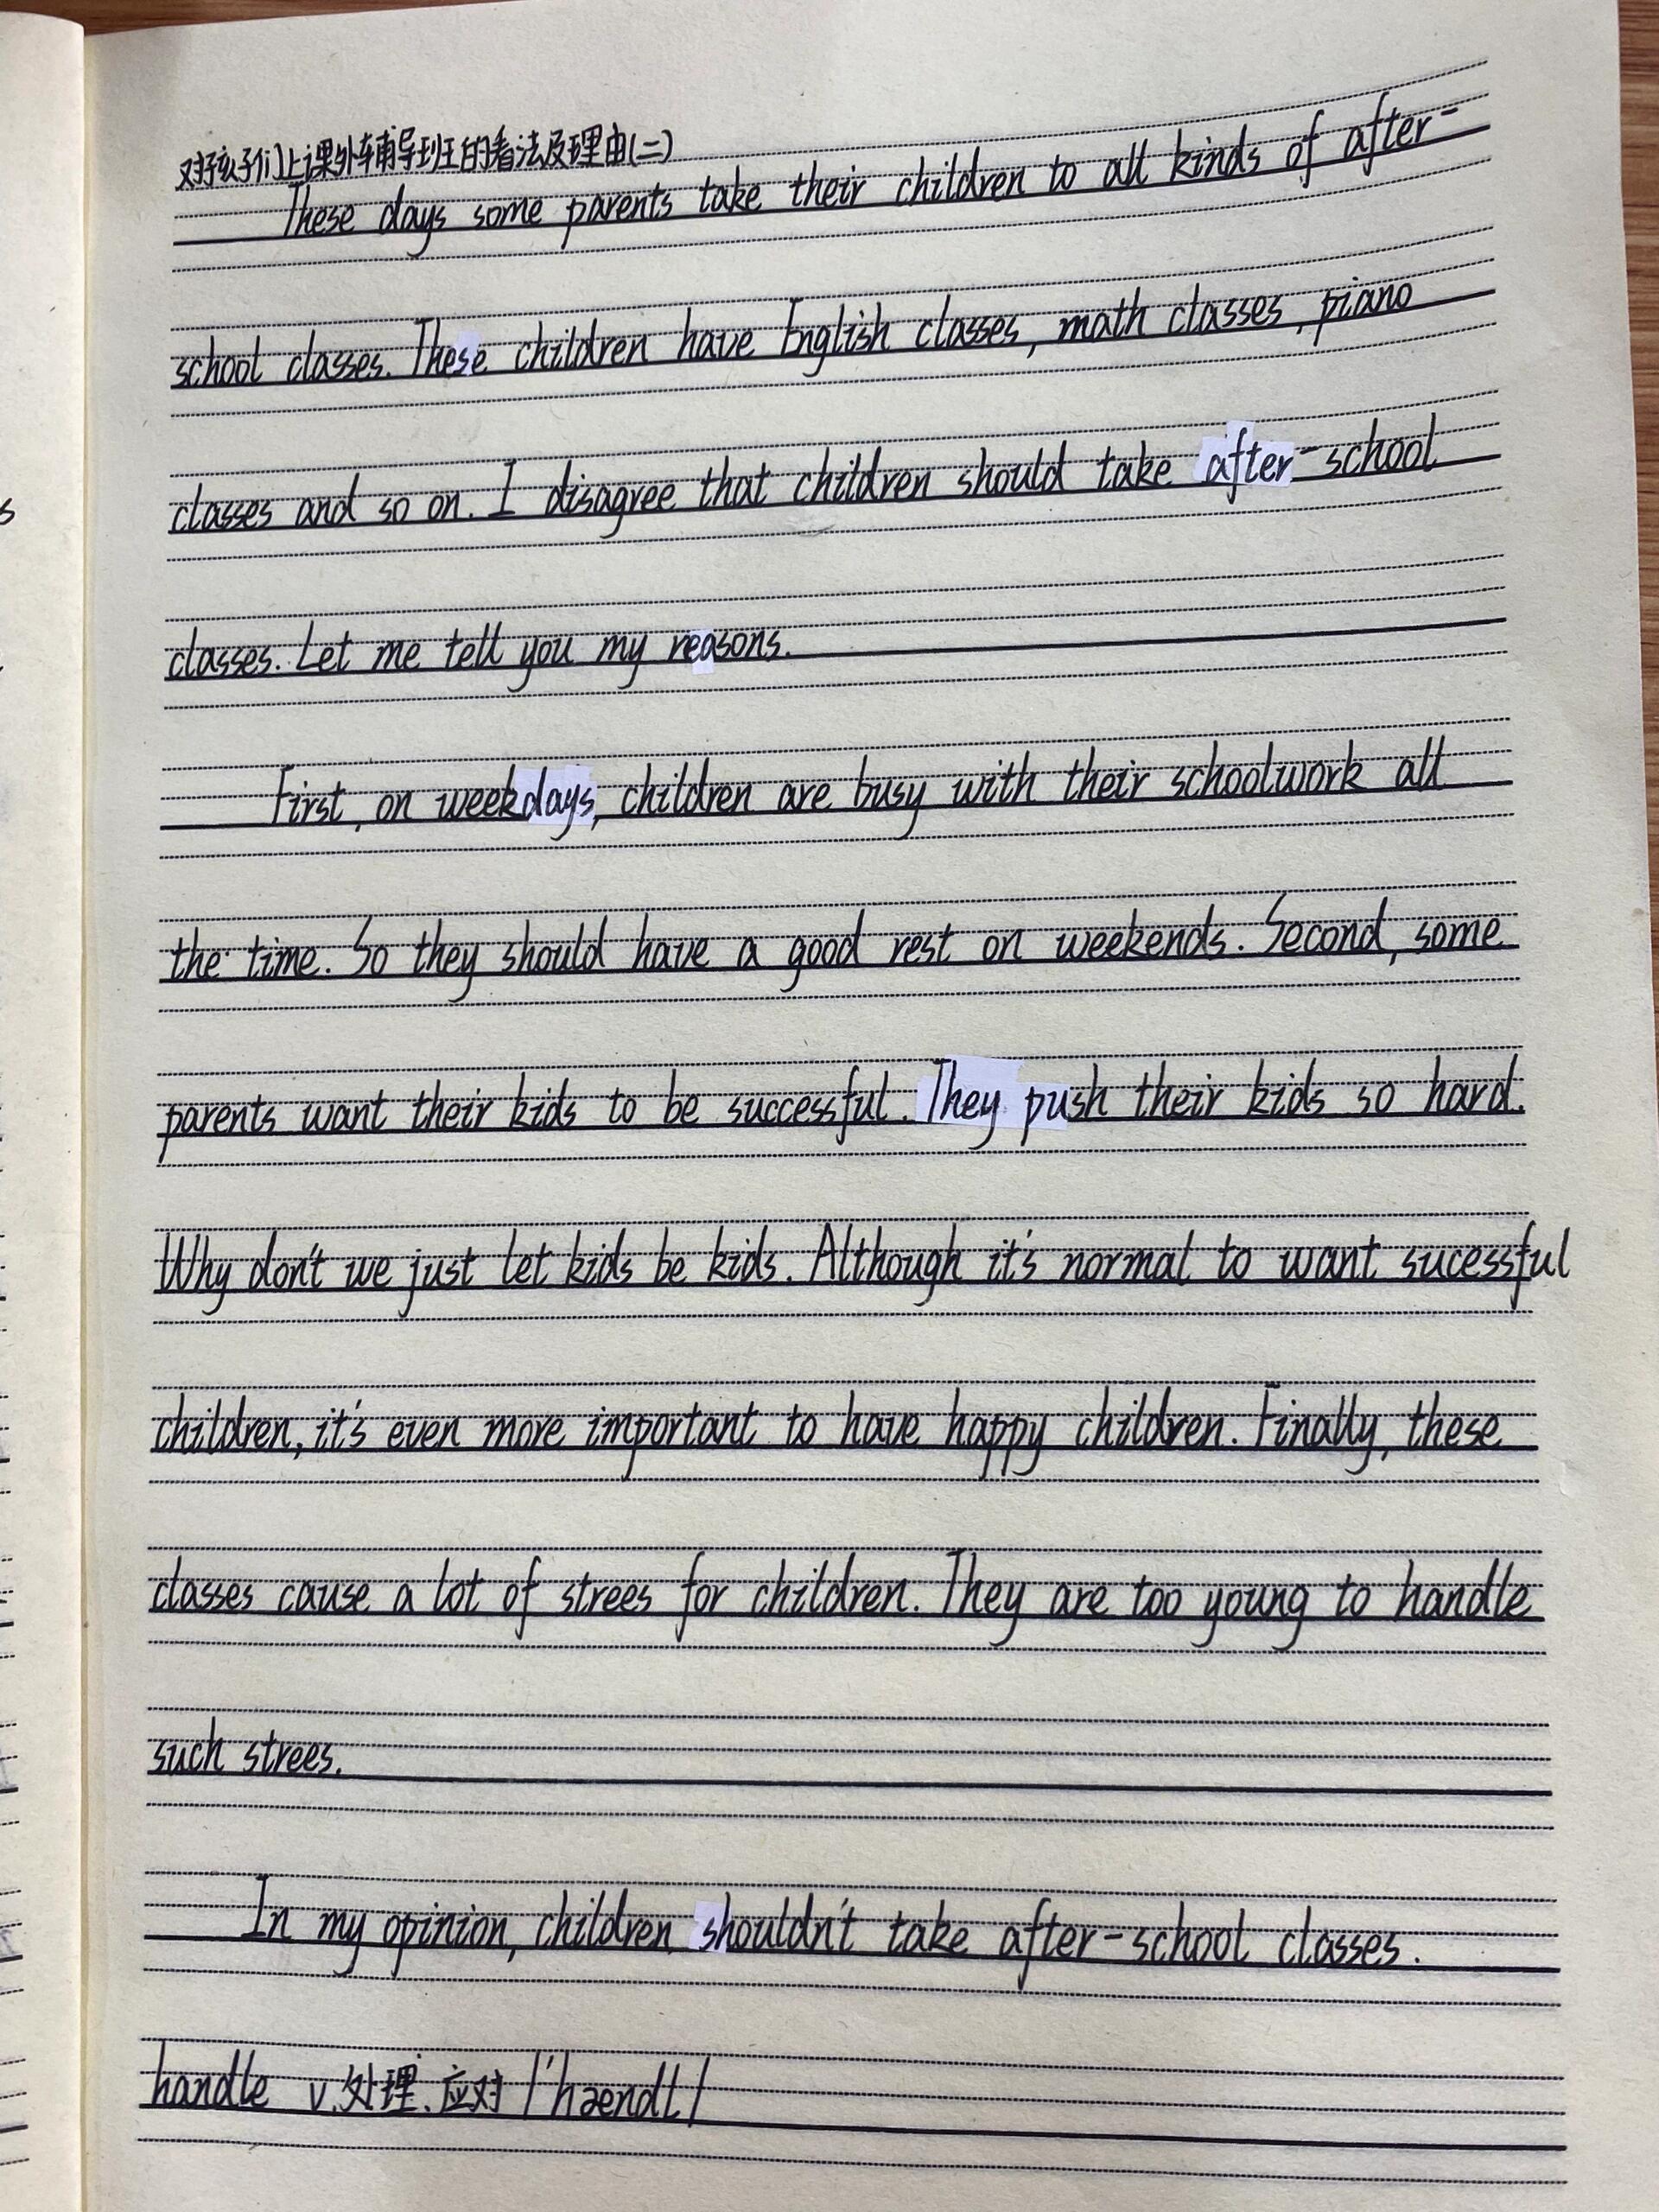 对孩子们上课外辅导班的看法及理由(二)
These days some parents take their children to all kinds of after-
school classes. These children have English classes, math classes, piano
classes and so on. I disagree that children should take after-school
classes. Let me tell you my reasons.
First, on weekdays, children are busy with their schoolwork all
the time. So they should have a good rest on weekends. Second, some
parents want their kids to be successful. They push their kids so hard.
Why don't we just let kids be kids. Although it's normal to want sucessful
children, it's even more important to have happy children. Finally, these
classes cause a lot of strees for children. They are too young to handle
such strees.
In my opinion, children shouldn't take after-school classes.
handle v.处理.应对 /'hændl/